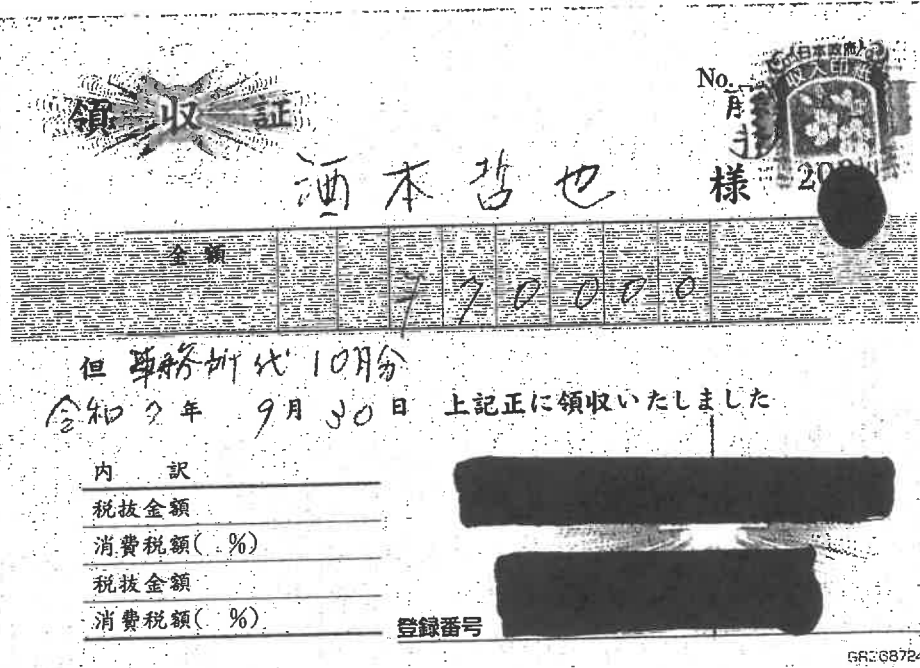 領収証
No.
日本政府
収入印紙
酒本哲也 様
金額 ¥70000
但 事務所代 10月分
令和7年 9月30日 上記正に領収いたしました
内 訳
税抜金額
消費税額( %)
税抜金額
消費税額( %)
登録番号